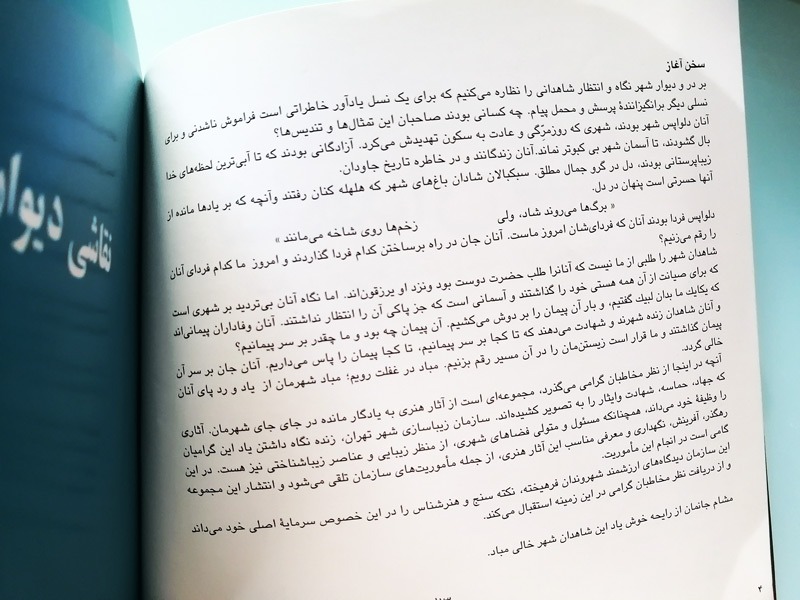 سخن آغاز
بر در و دیوار شهر نگاه و انتظار شاهدانی را نظاره می‌کنیم که برای یک نسل یادآور خاطراتی است فراموش ناشدنی و برای
نسلی دیگر برانگیزانندهٔ پرسش و محمل پیام. چه کسانی بودند صاحبان این تمثال‌ها و تندیس‌ها؟
آنان دلواپس شهر بودند، شهری که روزمرّگی و عادت به سکون تهدیدش می‌کرد. آزادگانی بودند که تا آبی‌ترین لحظه‌های خدا
بال گشودند، تا آسمان شهر بی کبوتر نماند.آنان زندگانند و در خاطره تاریخ جاودان.
زیباپرستانی بودند، دل در گرو جمال مطلق. سبکبالان شادان باغ‌های شهر که هلهله کنان رفتند وآنچه که بر یادها مانده از
آنها حسرتی است پنهان در دل.
« برگ‌ها می‌روند شاد، ولی زخم‌ها روی شاخه می‌مانند »
دلواپس فردا بودند آنان که فردای‌شان امروز ماست. آنان جان در راه برساختن کدام فردا گذاردند و امروز ما کدام فردای آنان
را رقم می‌زنیم؟
شاهدان شهر را طلبی از ما نیست که آنانرا طلب حضرت دوست بود ونزد او یرزقون‌اند. اما نگاه آنان بی‌تردید بر شهری است
که برای صیانت از آن همه هستی خود را گذاشتند و آسمانی است که جز پاکی آن را انتظار نداشتند. آنان وفاداران پیمانی‌اند
که یکایک ما بدان لبیک گفتیم، و بار آن پیمان را بر دوش می‌کشیم. آن پیمان چه بود و ما چقدر بر سر پیمانیم؟
و آنان شاهدان زنده شهرند و شهادت می‌دهند که تا کجا بر سر پیمانیم، تا کجا پیمان را پاس می‌داریم. آنان جان بر سر آن
پیمان گذاشتند و ما قرار است زیستن‌مان را در آن مسیر رقم بزنیم. مباد در غفلت رویم؛ مباد شهرمان از یاد و رد پای آنان
خالی گردد.
آنچه در اینجا از نظر مخاطبان گرامی می‌گذرد، مجموعه‌ای است از آثار هنری به یادگار مانده در جای جای شهرمان. آثاری
که جهاد، حماسه، شهادت وایثار را به تصویر کشیده‌اند. سازمان زیباسازی شهر تهران، زنده نگاه داشتن یاد این گرامیان
را وظیفهٔ خود می‌داند، همچنانکه مسئول و متولی فضاهای شهری، از منظر زیبایی و عناصر زیباشناختی نیز هست. در این
رهگذر، آفرینش، نگهداری و معرفی مناسب این آثار هنری، از جمله مأموریت‌های سازمان تلقی می‌شود و انتشار این مجموعه
گامی است در انجام این مأموریت.
این سازمان دیدگاه‌های ارزشمند شهروندان فرهیخته، نکته سنج و هنرشناس را در این خصوص سرمایهٔ اصلی خود می‌داند
و از دریافت نظر مخاطبان گرامی در این زمینه استقبال می‌کند.
مشام جانمان از رایحه خوش یاد این شاهدان شهر خالی مباد.
۴
نقاشی